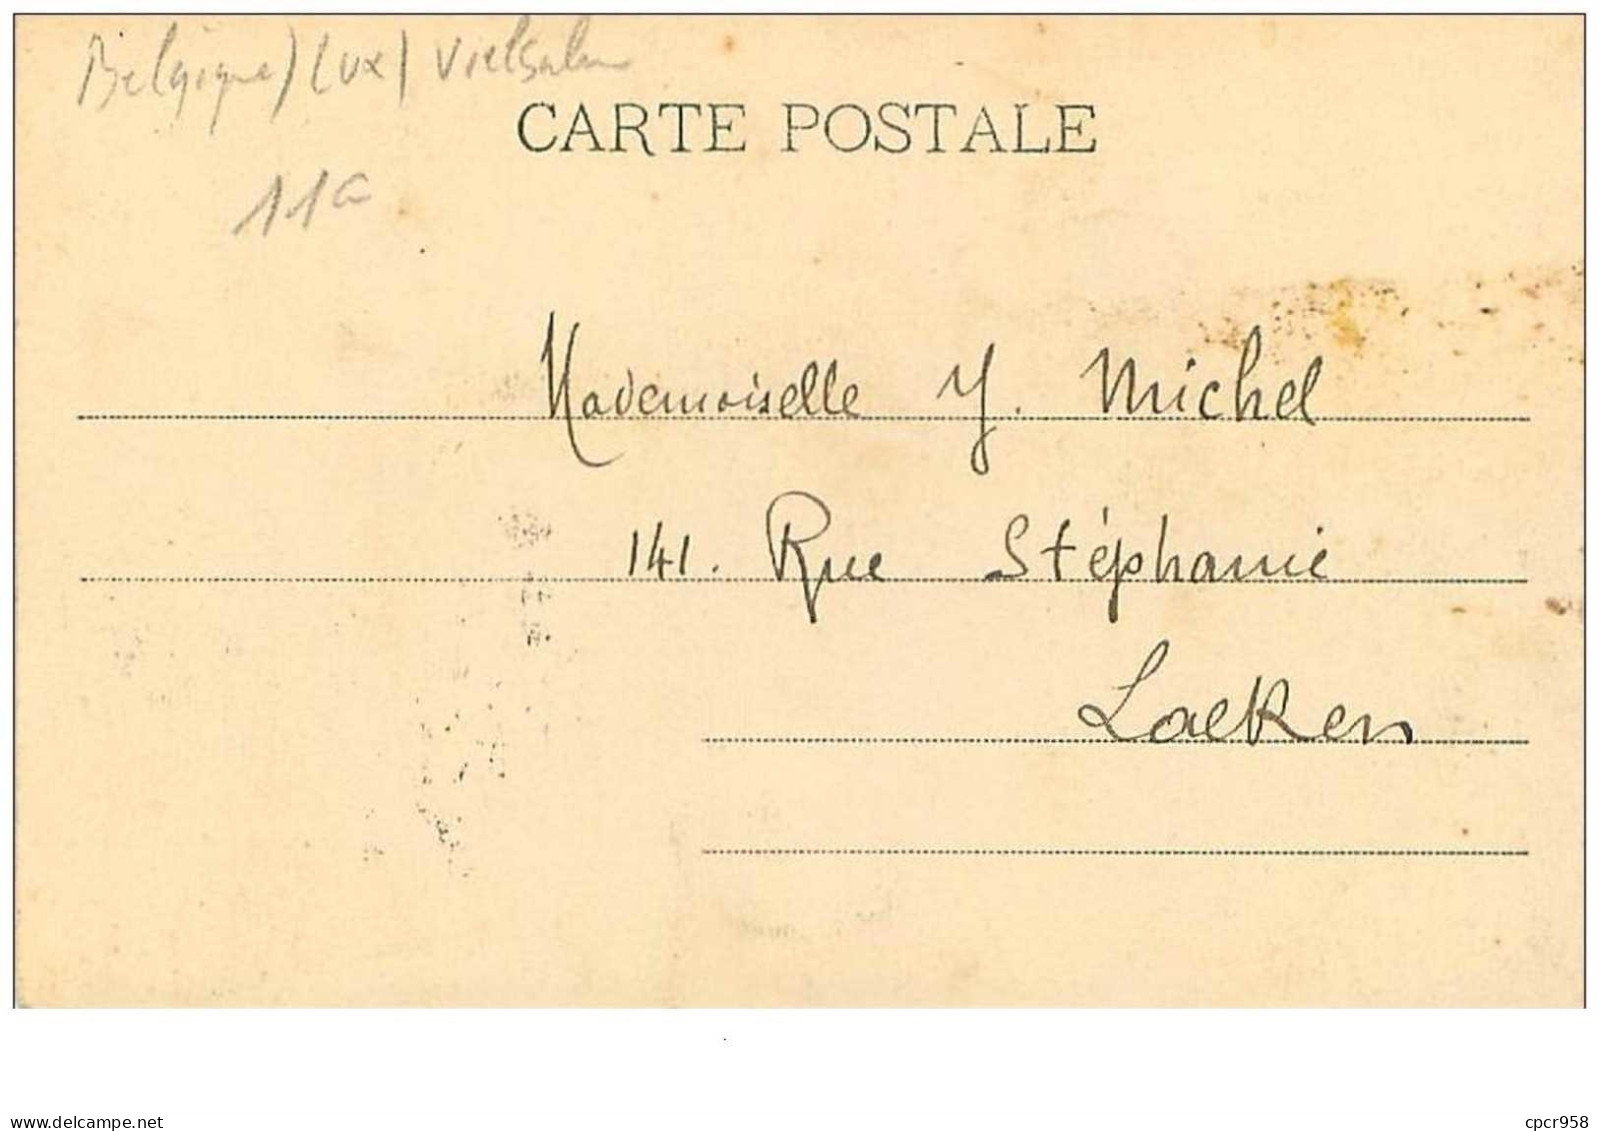 Belgique) Lux) Vielsalm
CARTE POSTALE
11G
Mademoiselle Y. Michel
141. Rue Stéphanie
Laeken
www.delcampe.net
cpcr958